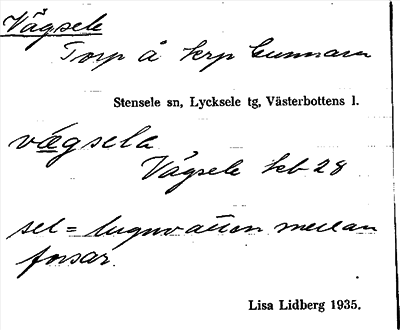 Vågsele
Torp å krp Gunnarn
Stensele sn, Lycksele tg, Västerbottens l.
vægsela
Vågsele kb 28
sel = lugnvatten mellan
forsar.
Lisa Lidberg 1935.